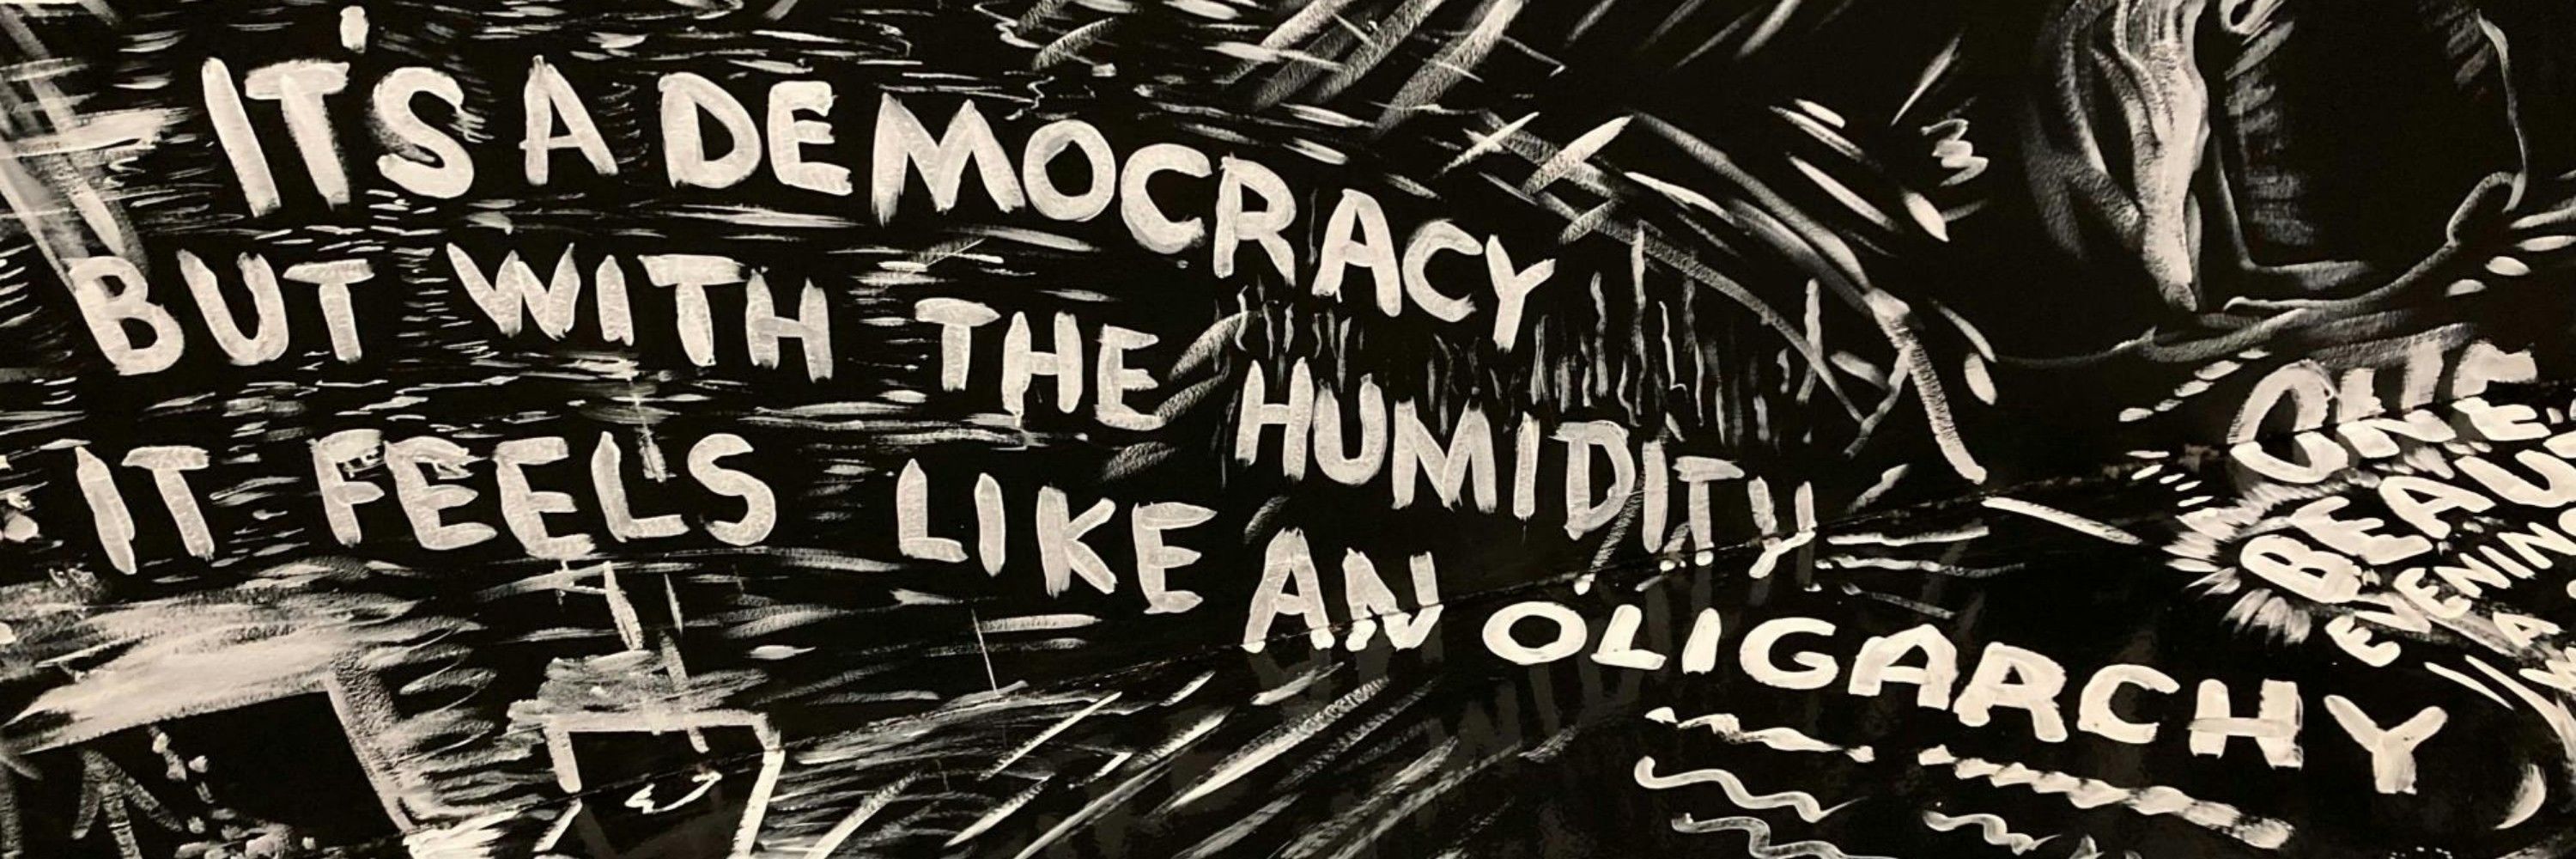 IT'S A DEMOCRACY
BUT WITH THE HUMIDITY
IT FEELS LIKE AN OLIGARCHY
ONE
EVENING
A